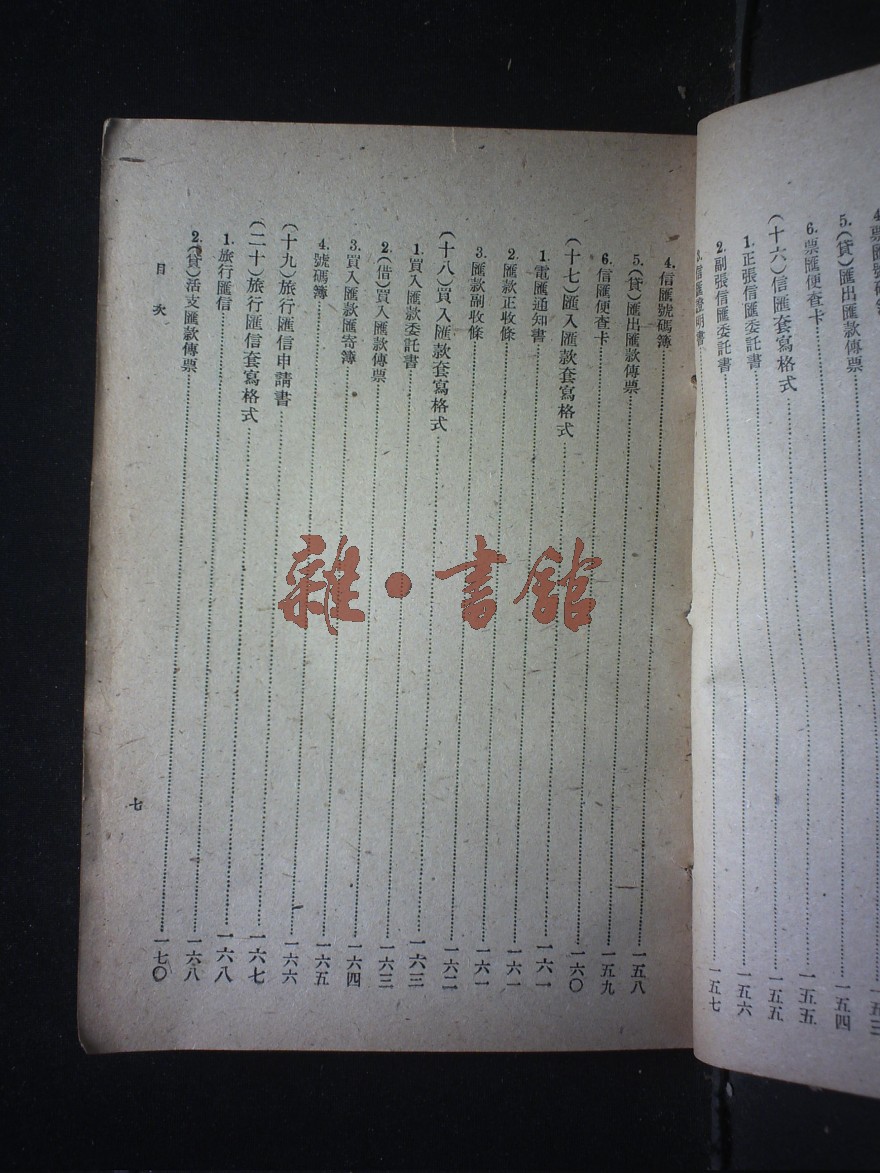 4.票匯號碼簿
5.(貸)匯出匯款傳票……一五三
6.票匯便查卡……一五四
(十六)信匯套寫格式……一五五
1.正張信匯委託書……一五五
2.副張信匯委託書……一五六
3.信匯證明書……一五七
4.信匯號碼簿……一五八
5.(貸)匯出匯款傳票……一五九
6.信匯便查卡……一六〇
(十七)匯入匯款套寫格式……一六一
1.電匯通知書……一六一
2.匯款正收條……一六一
3.匯款副收條……一六二
(十八)買入匯款套寫格式……一六三
1.買入匯款委託書……一六三
2.(借)買入匯款傳票……一六四
3.買入匯款匯寄簿……一六五
4.號碼簿……一六六
(十九)旅行匯信申請書……一六七
(二十)旅行匯信套寫格式……一六八
1.旅行匯信……一六八
2.(貸)活支匯款傳票……一七〇
目次
七
雜·書館